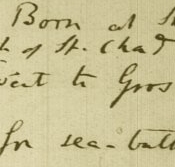 Born at S
h of St. Chad
Went to Gros
for sea-bath